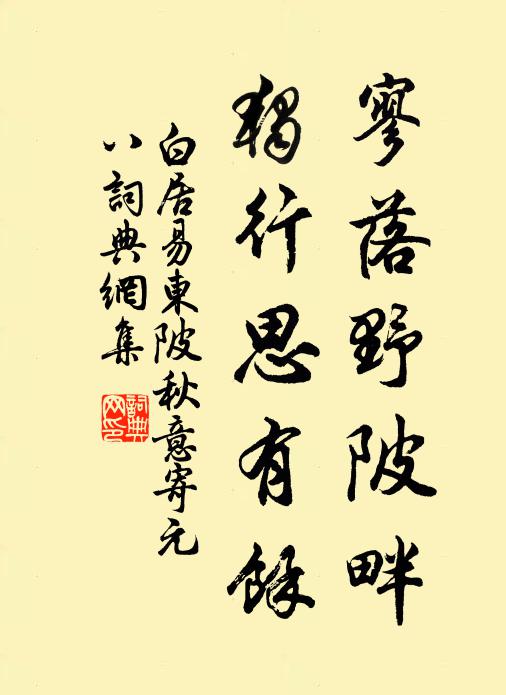 寥落野陂畔
獨行思有餘
白居易東陂秋意寄元
八詞典網集
詞典
网印